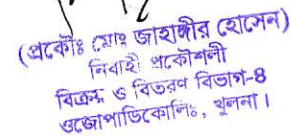 (প্রকৌঃ মোঃ জাহাঙ্গীর হোসেন)
নির্বাহী প্রকৌশলী
বিক্রয় ও বিতরণ বিভাগ-৪
ওজোপাডিকোলিঃ, খুলনা।